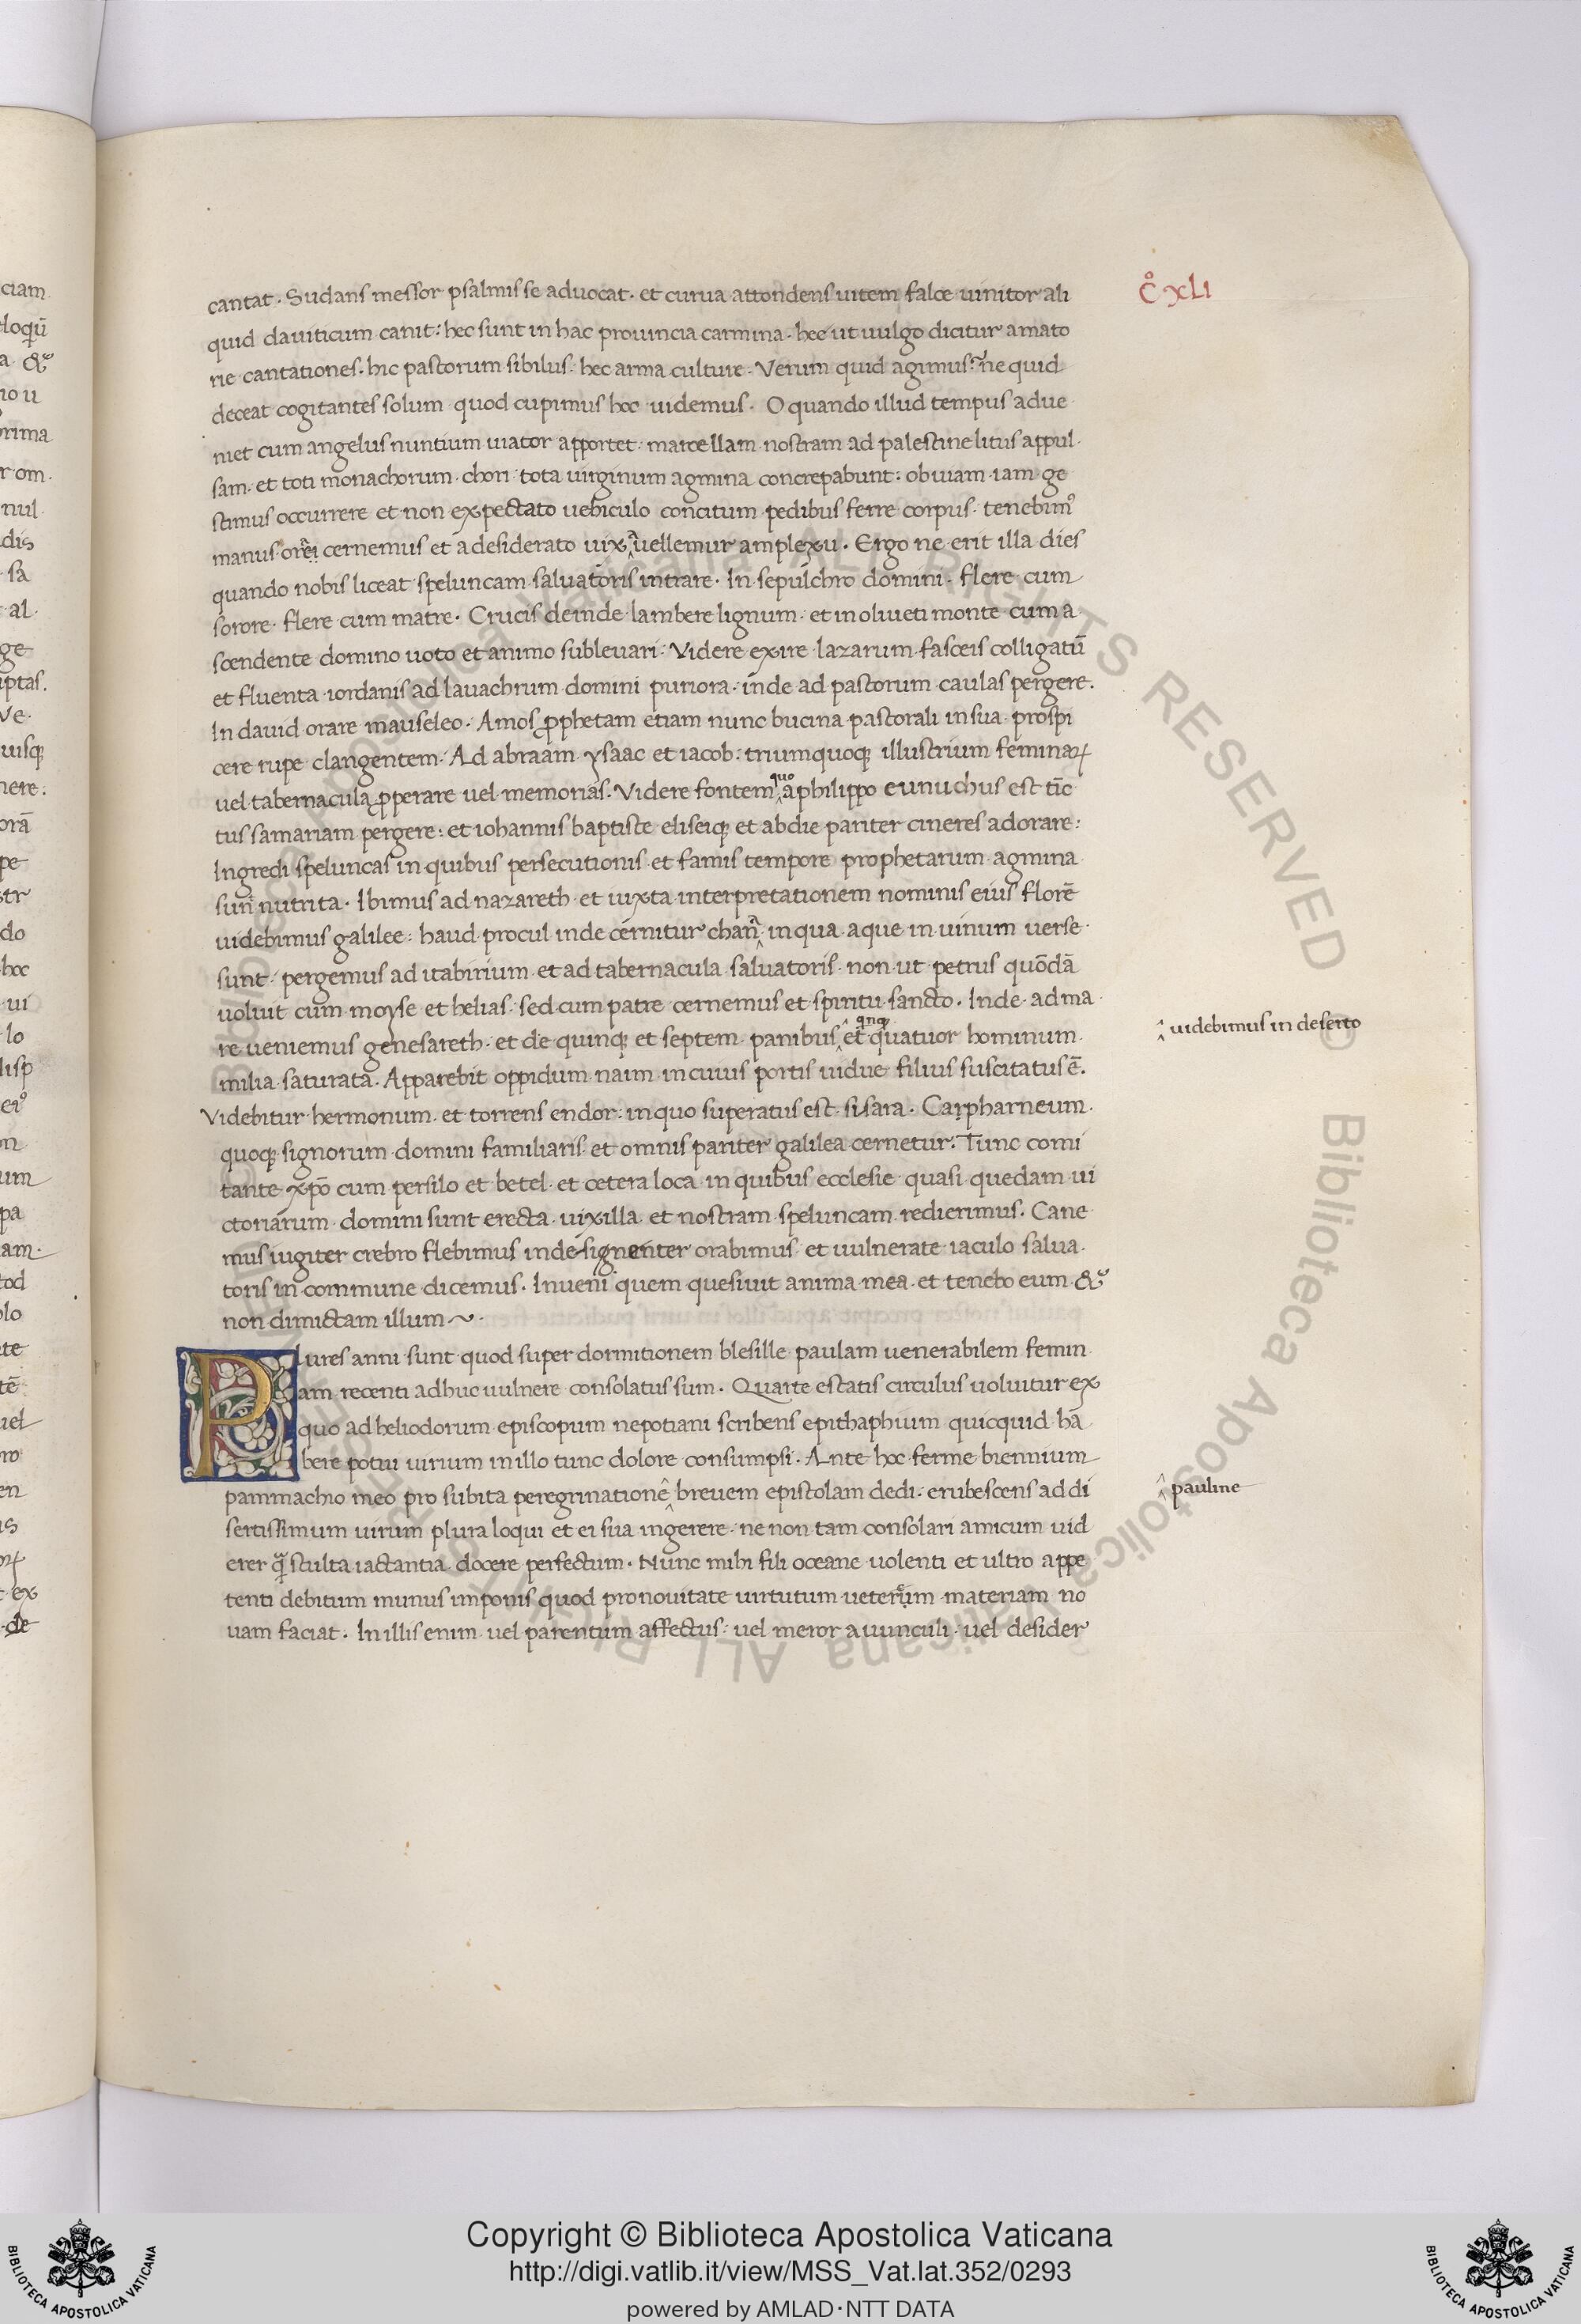 cantat. Sudans messor psalmis se aduocat. et curua attondens uitem falce uinitor ali
quid dauiticum canit: hec sunt in hac prouincia carmina. hec ut uulgo dicitur amato
rie cantationes. hic pastorum sibilus: hec arma culture. Verum quid agimus: ne quid
deceat cogitantes solum quod cupimus hoc uidemus. O quando illud tempus adue
niet cum angelus nuntium uiator apportet. marcellam nostram ad palestine litus appul
sam. et toti monachorum chori tota uirginum agmina concrepabunt: obuiam iam ge
stimus occurrere et non expectato uehiculo concitum pedibus ferre corpus. tenebim⁹
manus cernemus et a desiderato uix uellemur amplexu. Ergo ne erit illa dies
quando nobis liceat speluncam saluatoris intrare. In sepulchro domini flere cum
sorore. flere cum matre. Crucis deinde lambere lignum. et in oliueti monte cum a
scendente domino uoto et animo subleuari: Videre exire lazarum fasceis colligatū
et fluenta iordanis ad lauachrum domini puriora. inde ad pastorum caulas pergere.
In dauid orare mauseleo. Amos ꝓphetam etiam nunc bucina pastorali in sua prospi
cere rupe clangentem. Ad abraam ysaac et iacob: triumquoqꝫ illustrium feminaꝝ
uel tabernacula ꝓperare uel memorias. Videre fontem quo a philippo eunuchus est tīc
tus samariam pergere: et iohannis baptiste eliseiqꝫ et abdie pariter cineres adorare:
Ingredi speluncas in quibus persecutionis et famis tempore prophetarum agmina
sunt nutrita. Ibimus ad nazareth et iuxta interpretationem nominis eius florē
uidebimus galilee: haud procul inde cernitur chana in qua aque in uinum uerse
sunt. pergemus ad itabirium et ad tabernacula saluatoris. non ut petrus quōdā
uoluit cum moyse et helias. sed cum patre cernemus et spiritu sancto. Inde ad ma
re ueniemus genesareth. et de quinqꝫ et septem panibus ^ qnqꝫ et quatuor hominum
^ uidebimus in deserto
milia saturata. Apparebit oppidum naim in cuius portis uidue filius suscitatus ē.
Videbitur hermonum et torrens endor: in quo superatus est sisara. Carpharneum
quoqꝫ signorum domini familiaris et omnis pariter galilea cernetur. Tunc comi
tante xp̄o cum persilo et betel et cetera loca in quibus ecclesie quasi quedam ui
ctoriarum domini sunt erecta uixilla et nostram speluncam redierimus. Cane
mus iugiter crebro flebimus indesignenter orabimus et uulnerate iaculo salua
toris in commune dicemus. Inueni quem quesiuit anima mea. et tenebo eum &
non dimictam illum ~.
Plures anni sunt quod super dormitionem blesille paulam uenerabilem femin
am recenti adhuc uulnere consolatus sum. Quarte estatis circulus uoluitur ex
quo ad heliodorum episcopum nepotiani scribens epithaphium quicquid ha
bere potui uirium in illo tunc dolore consumpsi. Ante hoc ferme biennium
pammachio meo pro subita peregrinatione ^ breuem epistolam dedi. erubescens ad di
^ pauline
sertissimum uirum plura loqui et ei sua ingerere. ne non tam consolari amicum uid
erer stulta iactantia docere perfectum. Nunc mihi fili oceane uolenti et ultro appe
tenti debitum munus imponis quod pro nouitate uirtutum materiam no
uam faciat. In illis enim uel parentum affectus: uel meror auunculi. uel desider
XLI
Copyright © Biblioteca Apostolica Vaticana
http://digi.vatlib.it/view/MSS_Vat.lat.352/0293
powered by AMLAD·NTT DATA
BIBLIOTECA APOSTOLICA VATICANA
BIBLIOTECA APOSTOLICA VATICANA